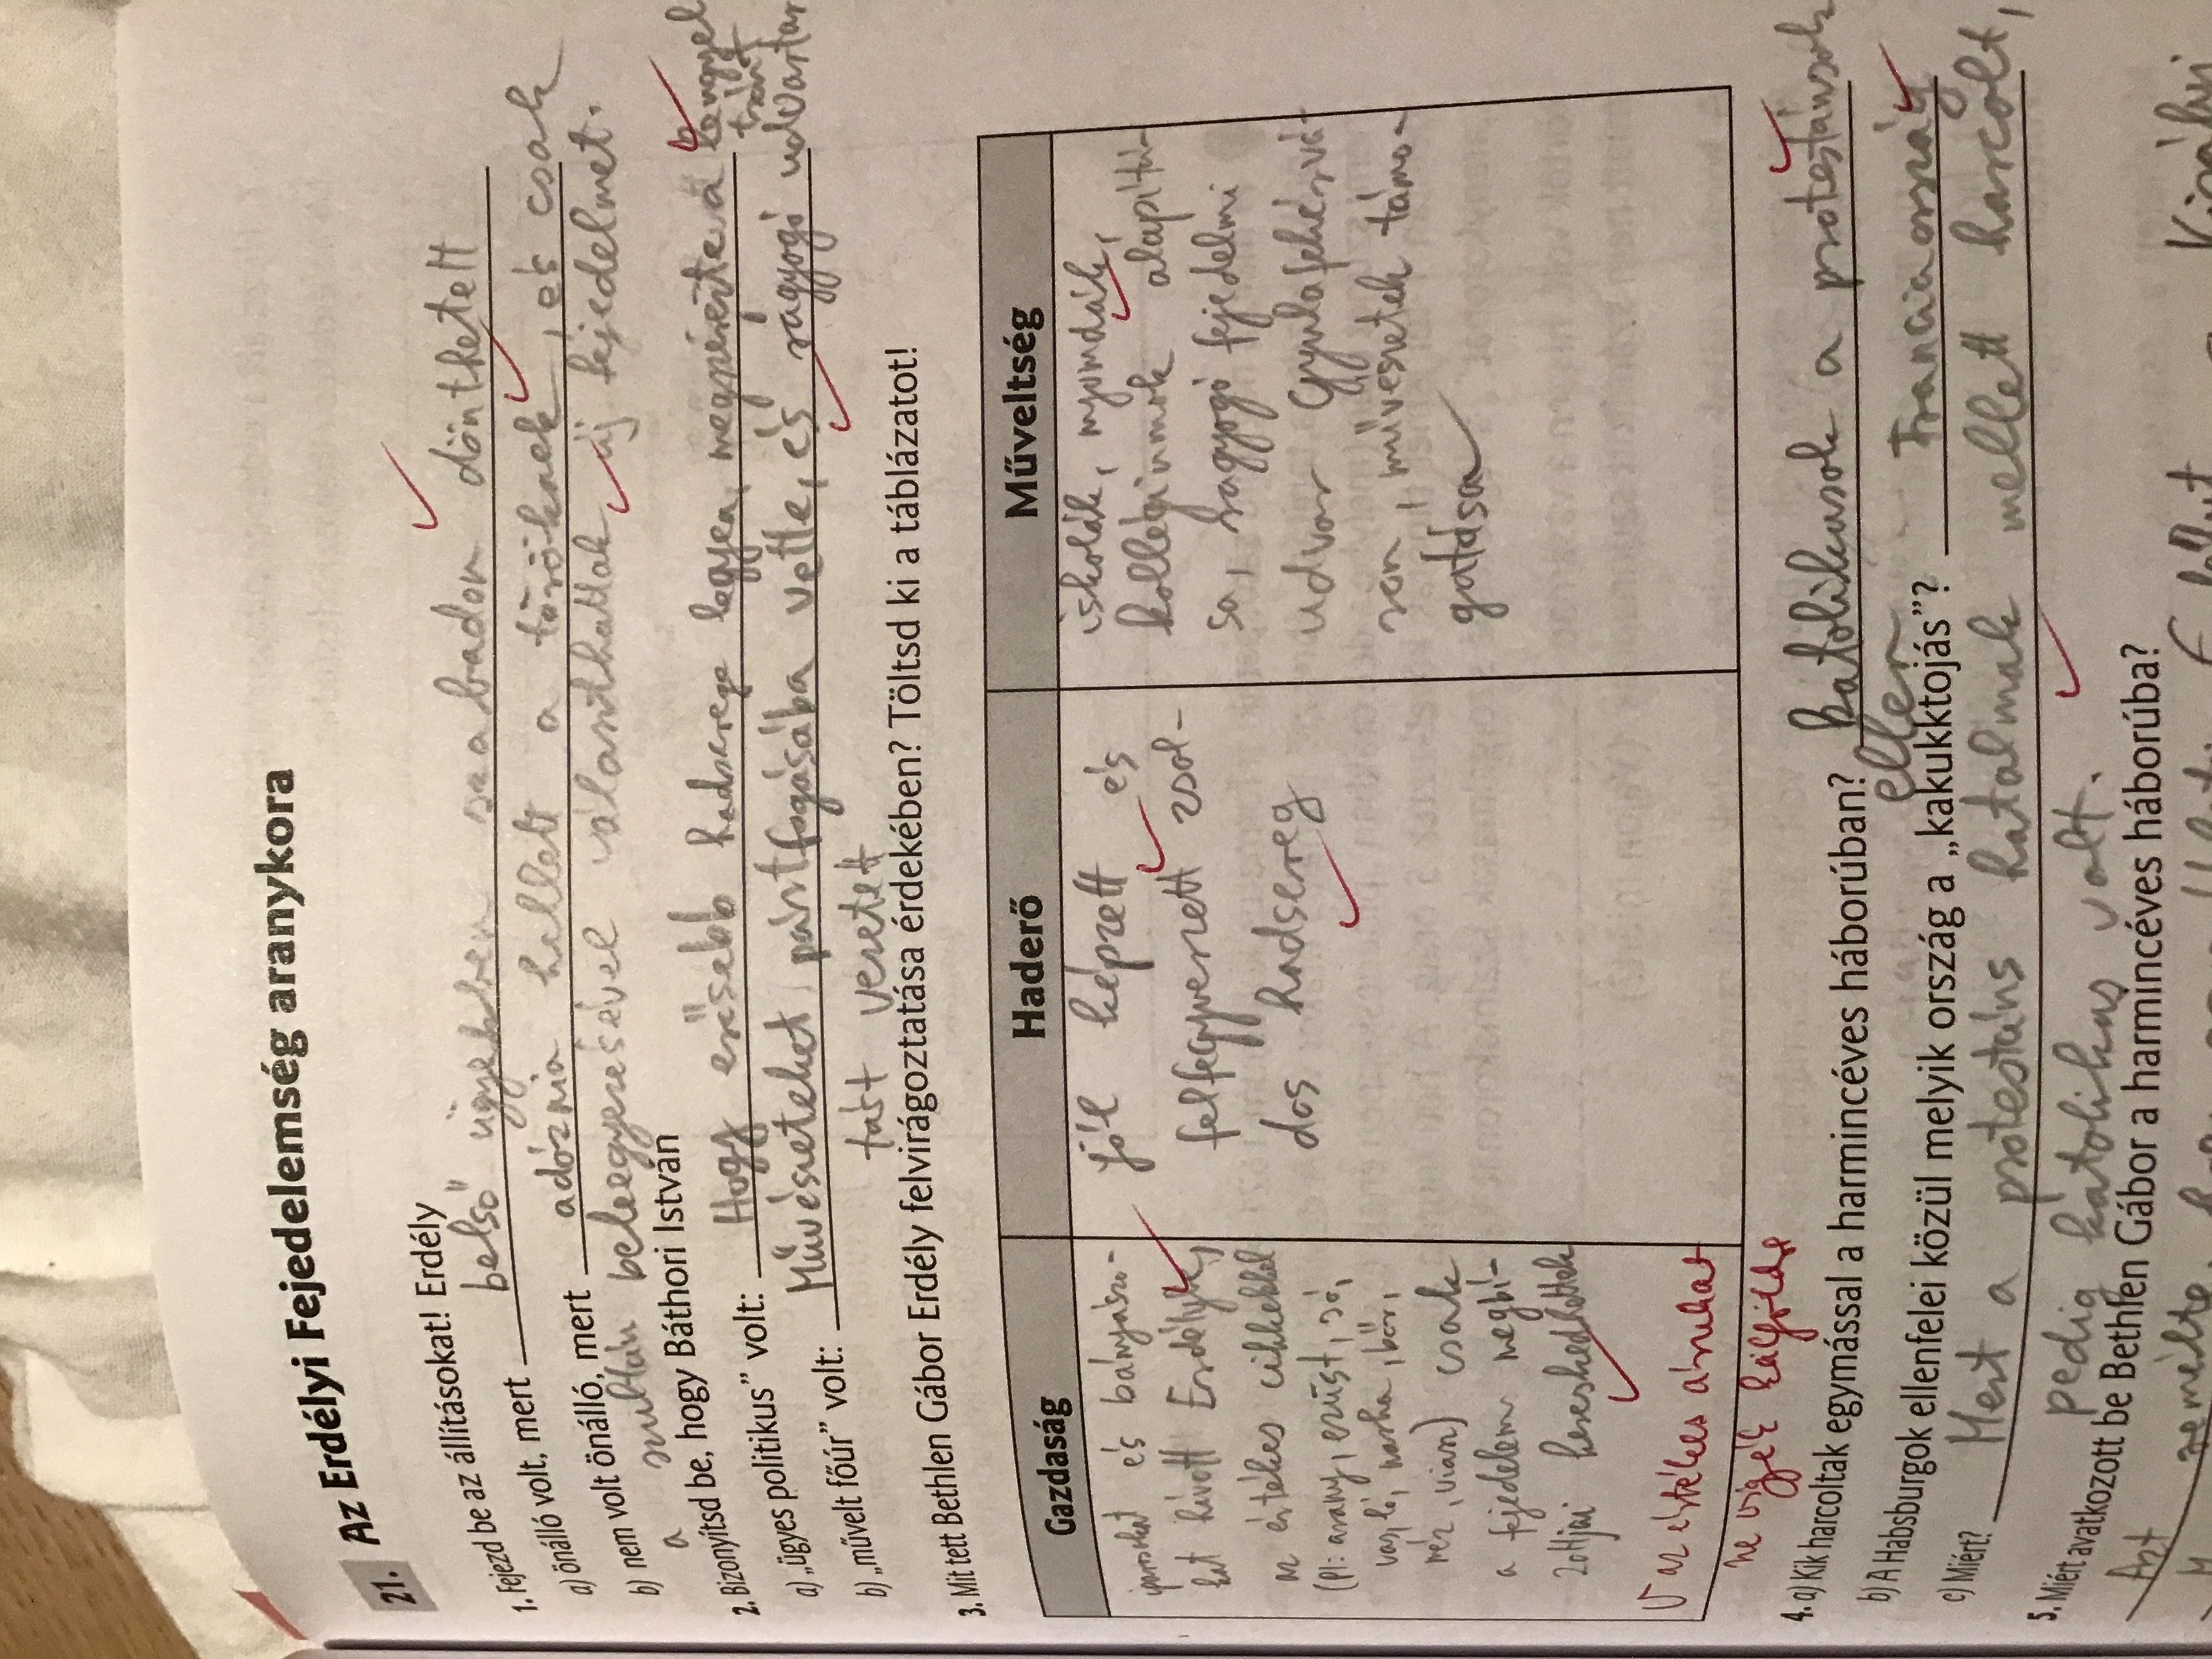 21. Az Erdélyi Fejedelemség aranykora
1. Fejezd be az állításokat! Erdély
a) önálló volt, mert belső ügyekben szabadon dönthetett
b) nem volt önálló, mert adóznia kellett a töröknek, és csak
a szultán beleegyezésével választhattak új fejedelmet.
2. Bizonyítsd be, hogy Báthori István
a) „ügyes politikus” volt: Hogy erősebb hadserege legyen, megszerezte a lengyel
trónt
b) „művelt főúr” volt: Művészeteket pártfogásába vette, és ragyogó udvartar
tást vezetett
3. Mit tett Bethlen Gábor Erdély felvirágoztatása érdekében? Töltsd ki a táblázatot!
Gazdaság
iparosokat és bányászo-
kat hívott Erdélybe,
az értékes cikkekkel
(Pl: arany, ezüst, só,
vas, ló, marha, bőr,
méz, viasz) csak
a fejedelem megbí-
zottjai kereskedhettek
az értékes árukat
ne vigyék külföldre
Haderő
jól képzett és
felfegyverzett zsol-
dos hadsereg
Műveltség
iskolák, nyomdák,
kollégiumok alapítá-
sa, ragyogó fejedelmi
udvar Gyulafehérvá-
ron, művészetek támo-
gatása
4. a) Kik harcoltak egymással a harmincéves háborúban? katolikusok a protestánsok
ellen
b) A Habsburgok ellenfelei közül melyik ország a „kakuktojás”? Franciaország
c) Miért? Mert a protestáns hatalmak mellett harcolt,
pedig katolikus volt.
5. Miért avatkozott be Bethlen Gábor a harmincéves háborúba?
Azt remélte,